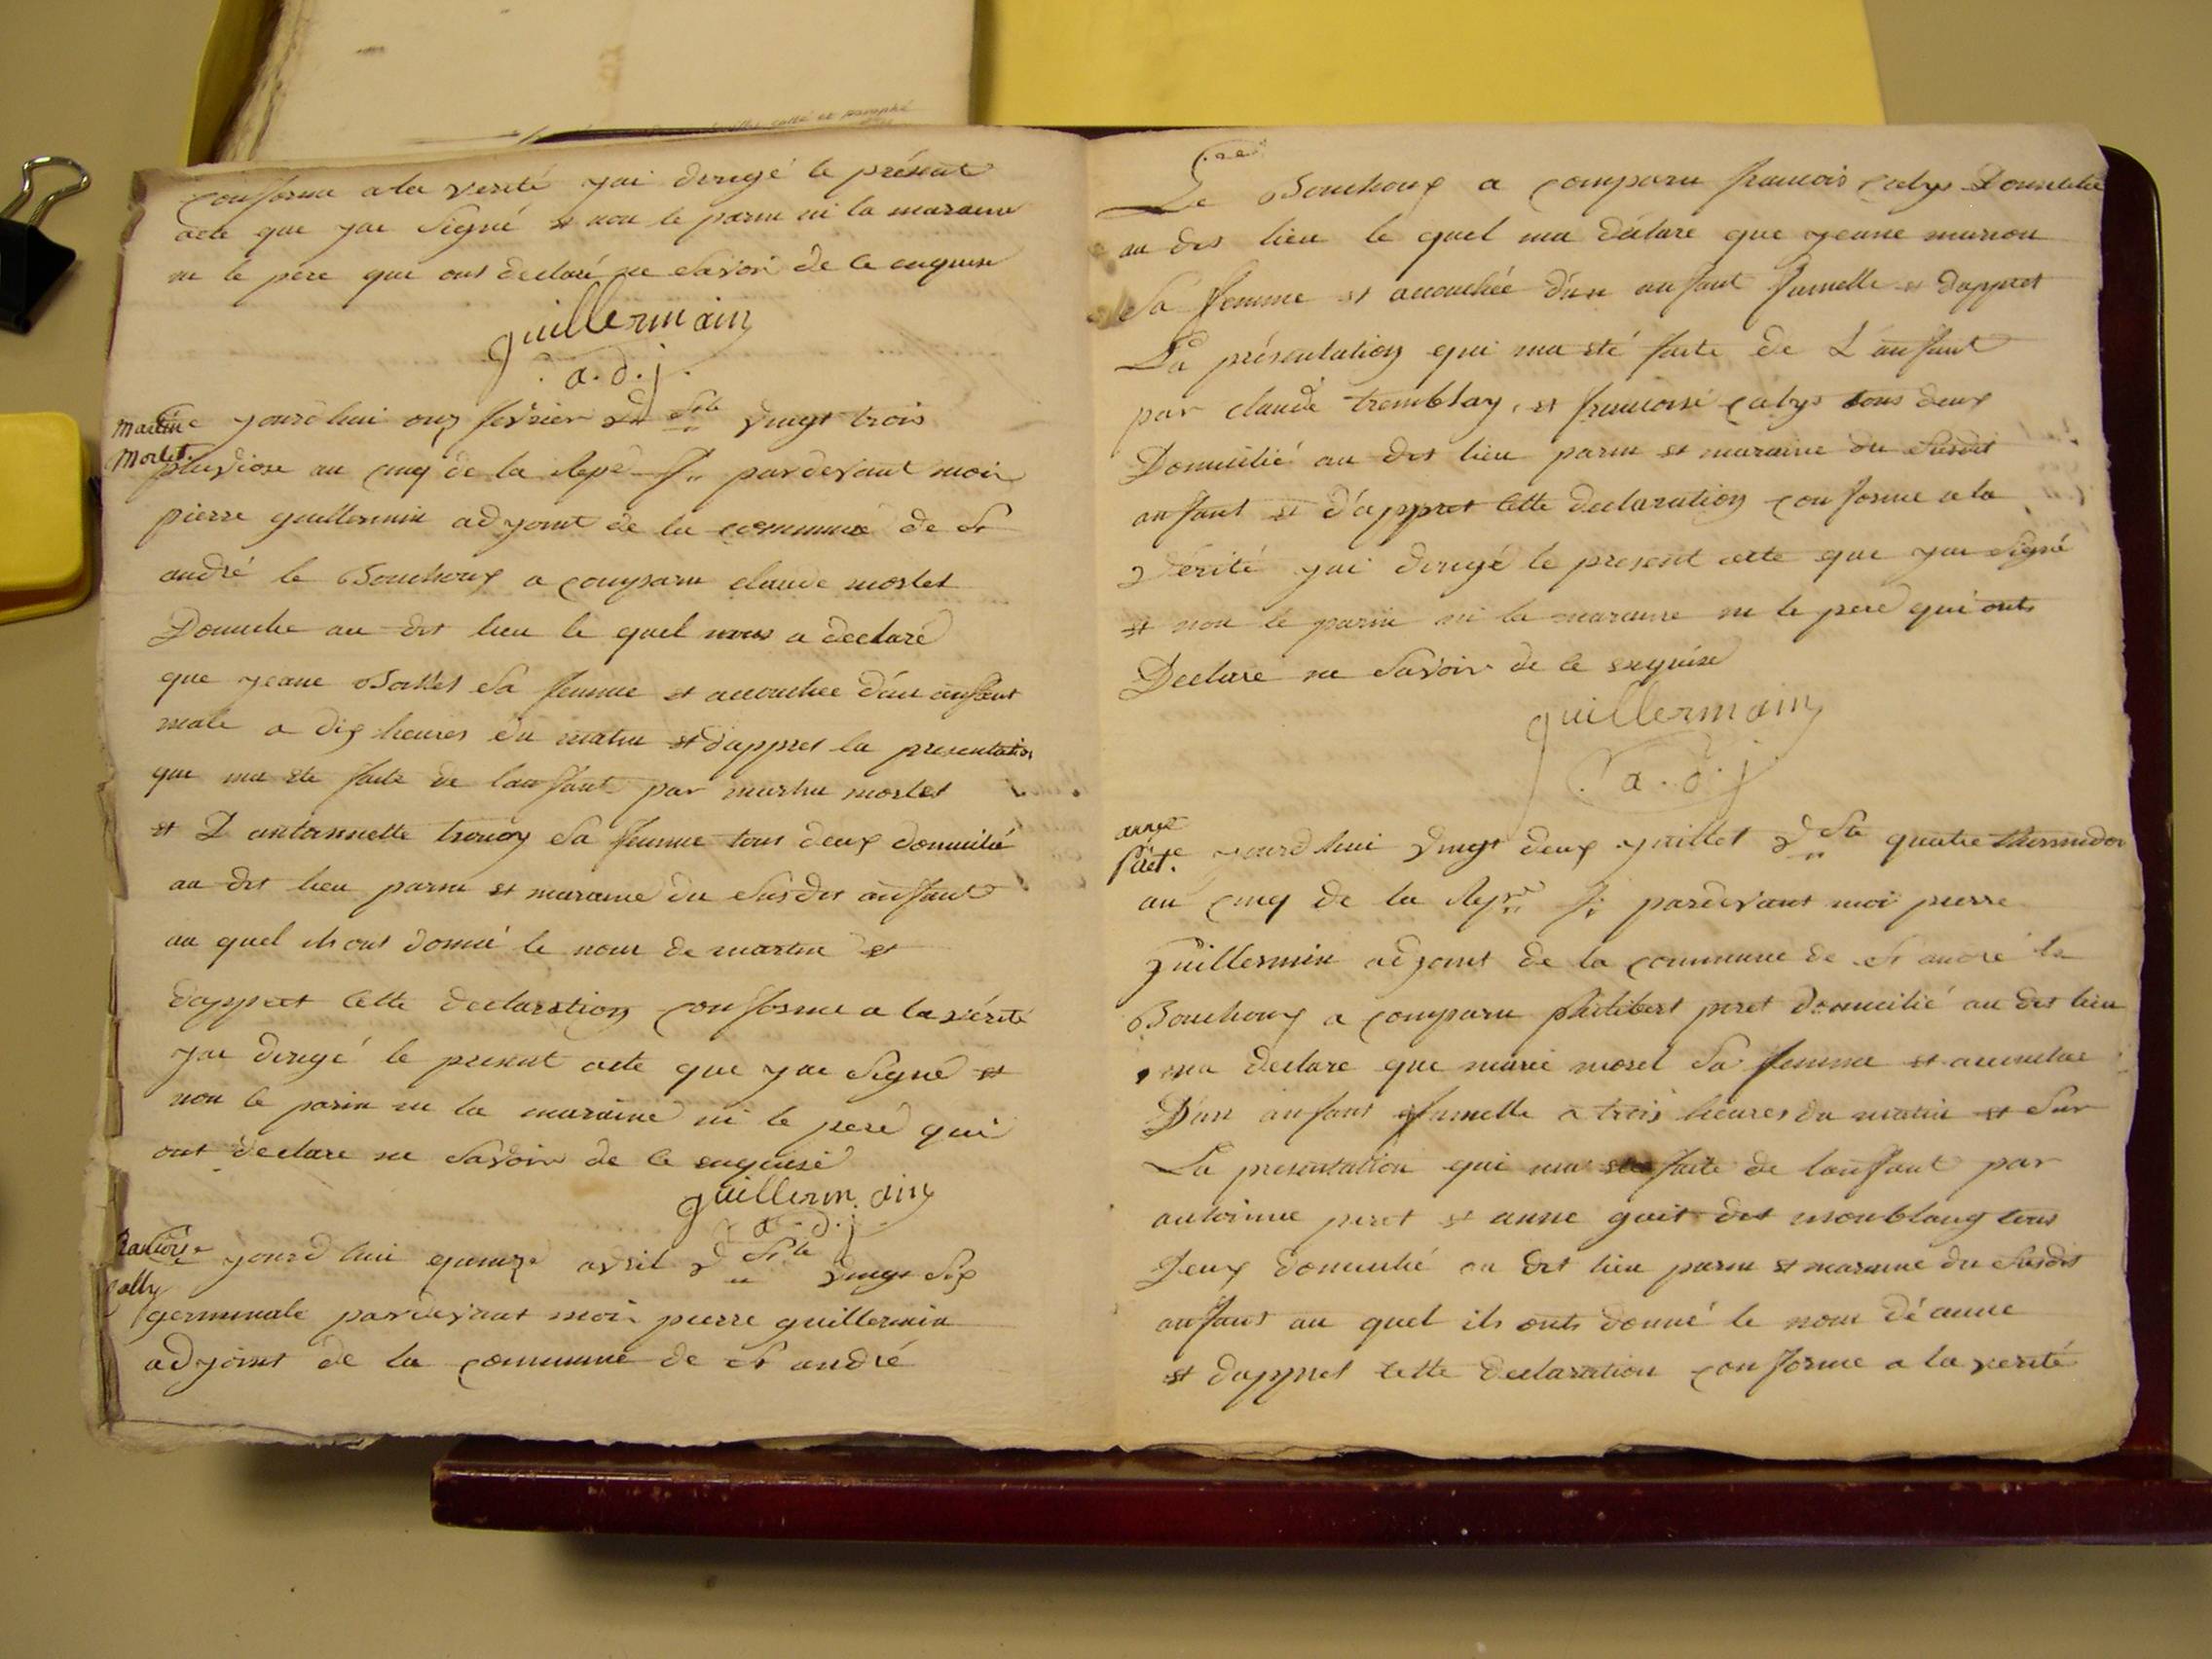 conforme a la verité jai dirigé le présent
acte que jai signé et non le parin ni la maraine
ni le pere qui ont declaré ne savoir de ce enquise
guillermain
a.d.j.
Martine
Morlet.
jourdhui onz fevrier v. stile vingt trois
pluviose an cinq de la Rep. f. pardevant moi
pierre guillermin adjoint de la commune de st
andré le Bouchoux a comparu claude morlet
Domicilie au dit lieu le quel nous a declaré
que jeane sa femme et accouchee dun anfant
male a dix heures du matin et dappret la presentation
que ma ete faite de lanfant par morlet
et antoinnette sa femme tous deux domicilié
au dit lieu parin et maraine du susdit anfant
au quel ils ont donné le nom de martin et
dappret cette declaration conforme a la vérité
jai dirigé le present acte que jai signé et
non le parin ni la maraine ni le pere qui
ont déclaré ne savoir de ce enquise
guillermain
a.d.j.
jourdhui quinze avril v. stile vingt six
germinale pardevant moi pierre guillermin
adjoint de la commune de st andré
Le Bouchoux a comparu francois Domicilie
au dit lieu le quel ma déclaré que jeane
sa femme et accouchée dun anfant fumelle et dappret
La présentation qui ma eté faite de L'anfant
par claude tremblay, et francoise tous deux
Domicilié au dit lieu parin et maraine du susdit
anfant et d'appret cette declaration conforme a la
vérité jai dirigé le present acte que jai signé
et non le parin ni la maraine ni le pere qui onts
Declaré ne savoir de ce enquise
guillermain
a.d.j
anne
jourdhui vingt deux juillet v. stile quatre thermidor
an cinq de la Rep. f. pardevant moi pierre
guillermin adjoint de la commune de st andré le
Bouchoux a comparu philibert peret domicilié au dit lieu
ma declare que marie morel sa femme et accouchee
D'un anfant fumelle a trois heures du matin et sur
La presentation qui ma ete faite de lanfant par
antoinne peret et anne goit dit monblang tous
Deux domicilié au dit lieu parin et maraine du susdit
anfant au quel ils onts donné le nom dé anne
et dappret cette declaration conforme a la verité